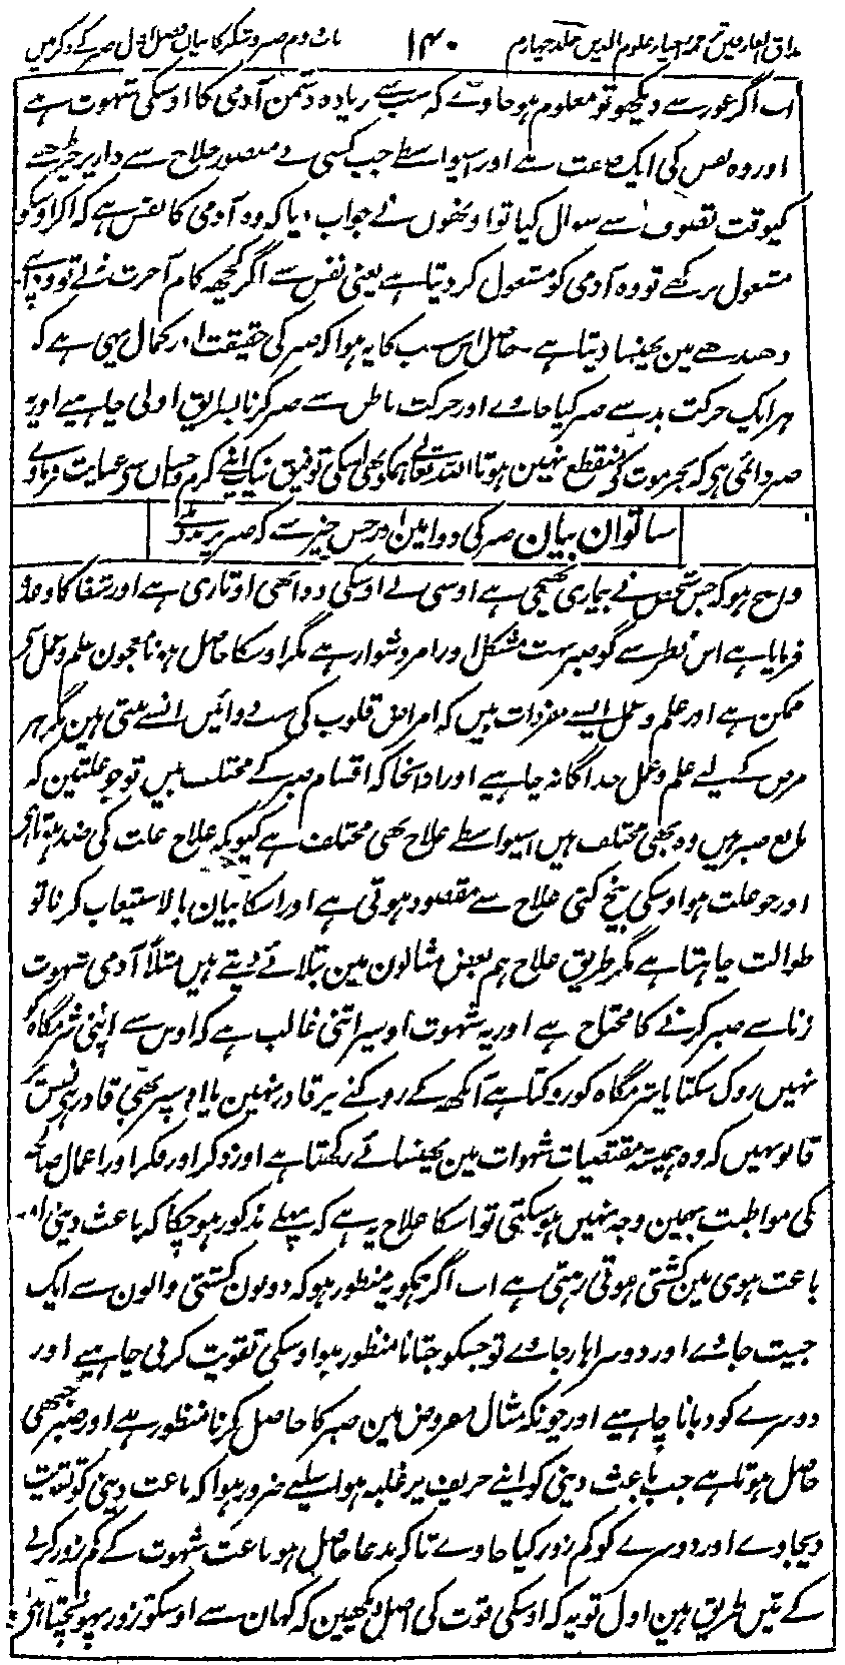 مذاق العارفین ترجمہ احیاء علوم الدین جلد چہارم ۱۴۰ باب دوم صبر و شکر کا بیان فصل اول صبر کے ذکر میں
اب اگر غور سے دیکھو تو معلوم ہو جاوے کہ سب سے زیادہ دشمن آدمی کا اوسکی شہوت ہے
اور وہ نفس کی ایک صفت ہے اور اسیواسطے جب کسی نے منصور حلاج سے دار پر چڑھنے
کیوقت تصوف سے سوال کیا تو اونھوں نے جواب دیا کہ وہ آدمی کا نفس ہے کہ اگر اوسکو
مشغول نہ رکھے تو وہ آدمی کو مشغول کر دیتا ہے یعنی نفس سے اگر کچھہ کام آخرت نہ لے تو وہ اپنے
دھندھے مین پھنسا دیتا ہے۔ حاصل اس سب کا یہ ہوا کہ صبر کی حقیقت اور کمال یہی ہے کہ
ہر ایک حرکت بد سے صبر کیا جاوے اور حرکت باطن سے صبر کرنا بطریق اولی چاہیے اور یہ
صبر دائمی ہی کہ بجز موت کے منقطع نہین ہوتا اللہ تعالے ہمکو بھی اسکی توفیق نیک اپنے کرم و احسان سے عنایت فرماوے
ساتوان بیان صبر کی دوا مین اور جس چیز سے کہ صبر پر مدد
واضح ہو کہ جس شخص نے بیماری بھیجی ہے اوسی نے اوسکی دوا بھی اوتاری ہے اور شفا کا وعدہ
فرمایا ہے اس نظر سے گو صبر بہت مشکل اور امر دشوار ہے مگر اوسکا حاصل ہونا معجون علم و عمل سے
ممکن ہے اور علم و عمل ایسے مفردات ہیں کہ امراض قلوب کی سب دوائیں انسے بنتی ہین مگر ہر
مرض کے لیے علم و عمل جداگانہ چاہیے اور ازانجا کہ اقسام صبر کے مختلف ہیں تو جو علتین کہ
مانع صبر ہیں وہ بھی مختلف ہیں اسیواسطے علاج بھی مختلف ہے کیونکہ علاج علت کی ضد ہوتا ہے
اور جو علت ہو اوسکی بیخ کنی علاج سے مقصود ہوتی ہے اور اسکا بیان بالاستیعاب کرنا تو
طوالت چاہتا ہے مگر طریق علاج ہم بعض مثالون مین بتلائے دیتے ہیں مثلاً آدمی شہوت
زنا سے صبر کرنے کا محتاج ہے اور یہ شہوت اوسپر اتنی غالب ہے کہ اوس سے اپنی شرمگاہ کو
نہیں روک سکتا یا شرمگاہ کو روکتا ہے آنکھ کے روکنے پر قادر نہین یا اوسپر بھی قادر ہی نفس پر
قابو نہیں کہ وہ ہمیشہ مقتضیات شہوات مین پھنسائے رکھتا ہے اور ذکر اور فکر اور اعمال صالحہ
کی مواظبت بہمین وجہ نہیں ہو سکتی تو اسکا علاج یہ ہے کہ پہلے مذکور ہو چکا کہ باعث دینی اور
باعث ہوی مین کشتی ہوتی رہتی ہے اب اگر ہمکو یہ منظور ہو کہ دونون کشتی والون سے ایک
جیت جاوے اور دوسرا ہار جاوے تو جسکو جتانا منظور ہو اوسکی تقویت کرنی چاہیے اور
دوسرے کو دبانا چاہیے اور چونکہ مثال معروض مین صبر کا حاصل کرنا منظور ہے اور صبر جبھی
حاصل ہوتا ہے جب باعث دینی کو اپنے حریف پر غلبہ ہو اسلیے ضرور ہوا کہ باعث دینی کو تقویت
دیجاوے اور دوسرے کو کم زور کیا جاوے تاکہ مدعا حاصل ہو باعث شہوت کے کم زور کرنے
کے تین طریق ہین اول تو یہ کہ اوسکی قوت کی اصل دیکھین کہ کہان سے اوسکو زور پہونچتا ہی